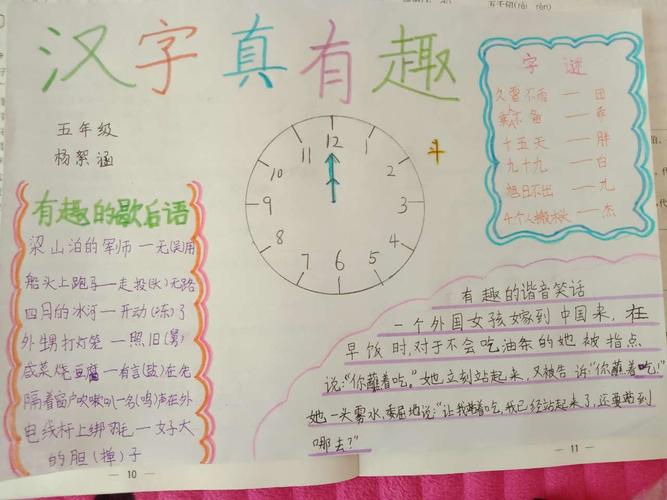 五千仞(rèi rèn)
汉字真有趣
五年级
杨絮涵
12
1
2
3
4
5
6
7
8
9
10
11
斗
字谜
久雷不雨 — 田
乘不备 — 乖
十五天 — 胖
九十九 — 白
旭日不出 — 九
4个人搬木头 — 杰
有趣的歇后语
梁山泊的军师 — 无(吴)用
船头上跑马 — 走投(头)无路
四月的冰河 — 开动(冻)了
外甥打灯笼 — 照旧(舅)
咸菜炖豆腐 — 有言(盐)在先
隔着窗户吹喇叭 — 名(鸣)声在外
电线杆上绑鸡毛 — 好大
的胆(掸)子
有趣的谐音笑话
一个外国女孩嫁到中国来,在
早饭时,对于不会吃油条的她被指点
说:“你蘸着吃。”她立刻站起来,又被告诉:“你蘸着吃!”
她一头雾水,委屈地说:“让我蘸着吃,我已经站起来了,还要站到
哪去?”
— 10 —
— 11 —